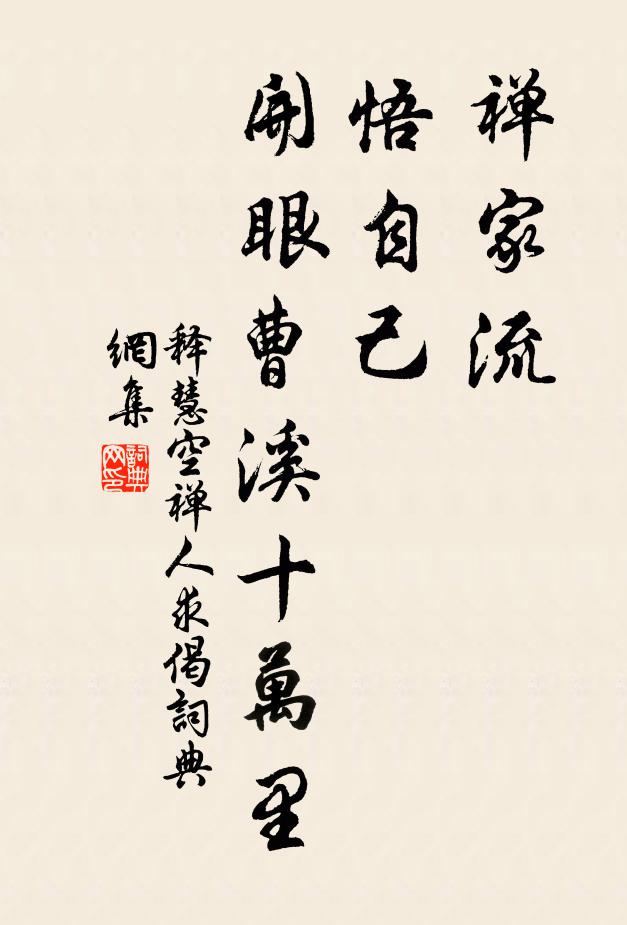 禅家流
悟自己
開眼曹溪十萬里
释慧空禅人求偈詞典
網集
詞典
网印